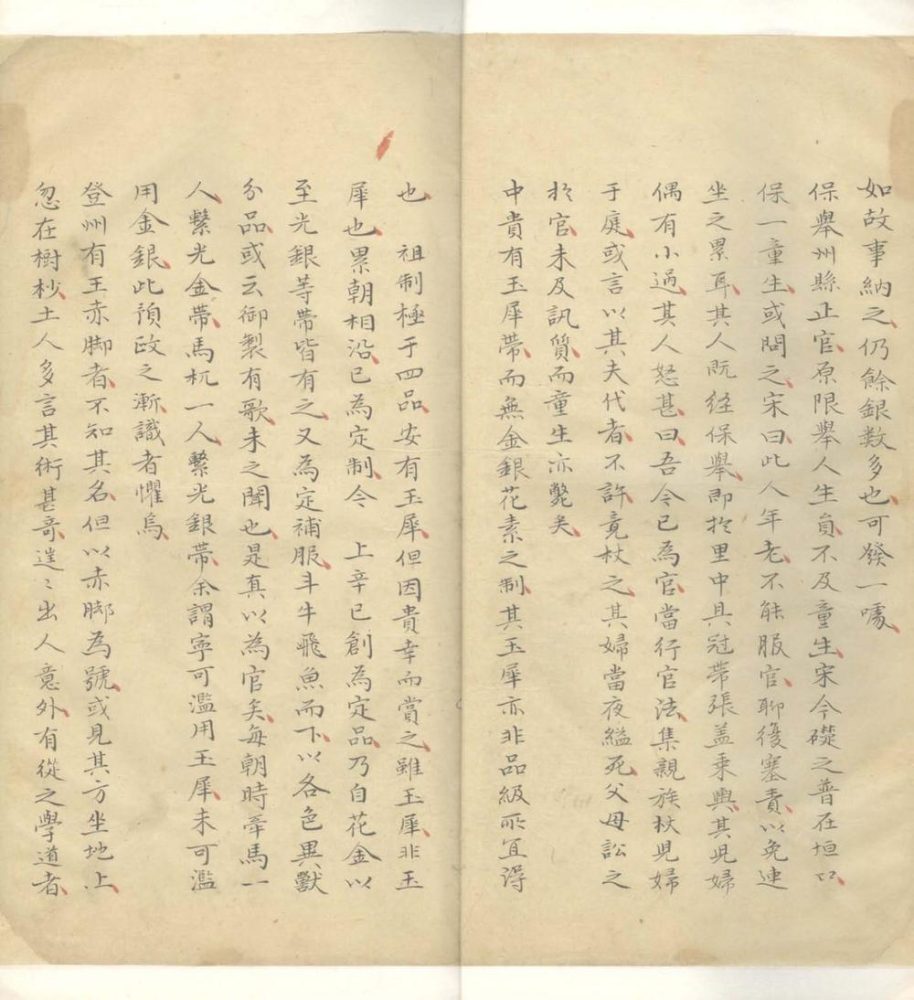 如故事納之仍餘銀数多也可發一噱
保舉州縣止官原限舉人生貟不及童生宋今礎之普在垣口
保一童生或問之宋曰此人年老不能服官聊復塞責以免連
坐之累耳其人既经保舉即扵里中具冠带張盖乘輿其児婦
偶有小過其人怒甚曰吾今已為官當行官法集親族杖児婦
于庭或言以其夫代者不許竟杖之其婦當夜縊死父母訟之
扵官未及訊質而童生亦斃矣
中貴有玉犀帶而無金銀花素之制其玉犀亦非品級所宜得
也　祖制極于四品安有玉犀但因貴幸而賞之雖玉犀非玉
犀也累朝相沿已為定制今　上辛巳創為定品乃自花金以
至光銀等帶皆有之又為定補服斗牛飛魚而下以各色異獸
分品或云御製有歌未之聞也是真以為官矣每朝時牽馬一
人繫光金帶馬杌一人繫光銀帶余謂寧可濫用玉犀未可濫
用金銀此預政之漸識者懼焉
登州有王赤脚者不知其名但以赤脚為號或見其方坐地上
忽在樹杪土人多言其術甚竒遑〻出人意外有從之學道者